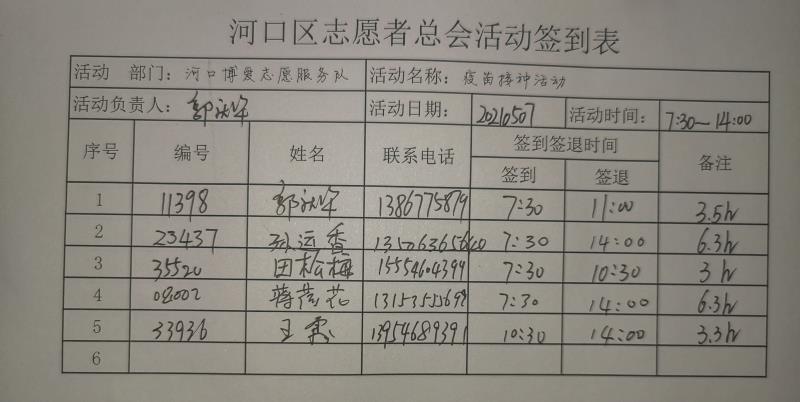 河口区志愿者总会活动签到表
活动 部门：河口博爱志愿服务队 活动名称：疫苗接种活动
活动负责人： 活动日期：20210507 活动时间：7:30—14:00
序号 编号 姓名 联系电话 签到签退时间 备注
签到 签退
1 11398 7:30 11:00 3.5h
2 23437 孙运香 7:30 14:00 6.3h
3 35520 田松梅 15554604399 7:30 10:30 3h
4 蒋莲花 7:30 14:00 6.3h
5 33936 王 13954689391 10:30 14:00 3.3h
6